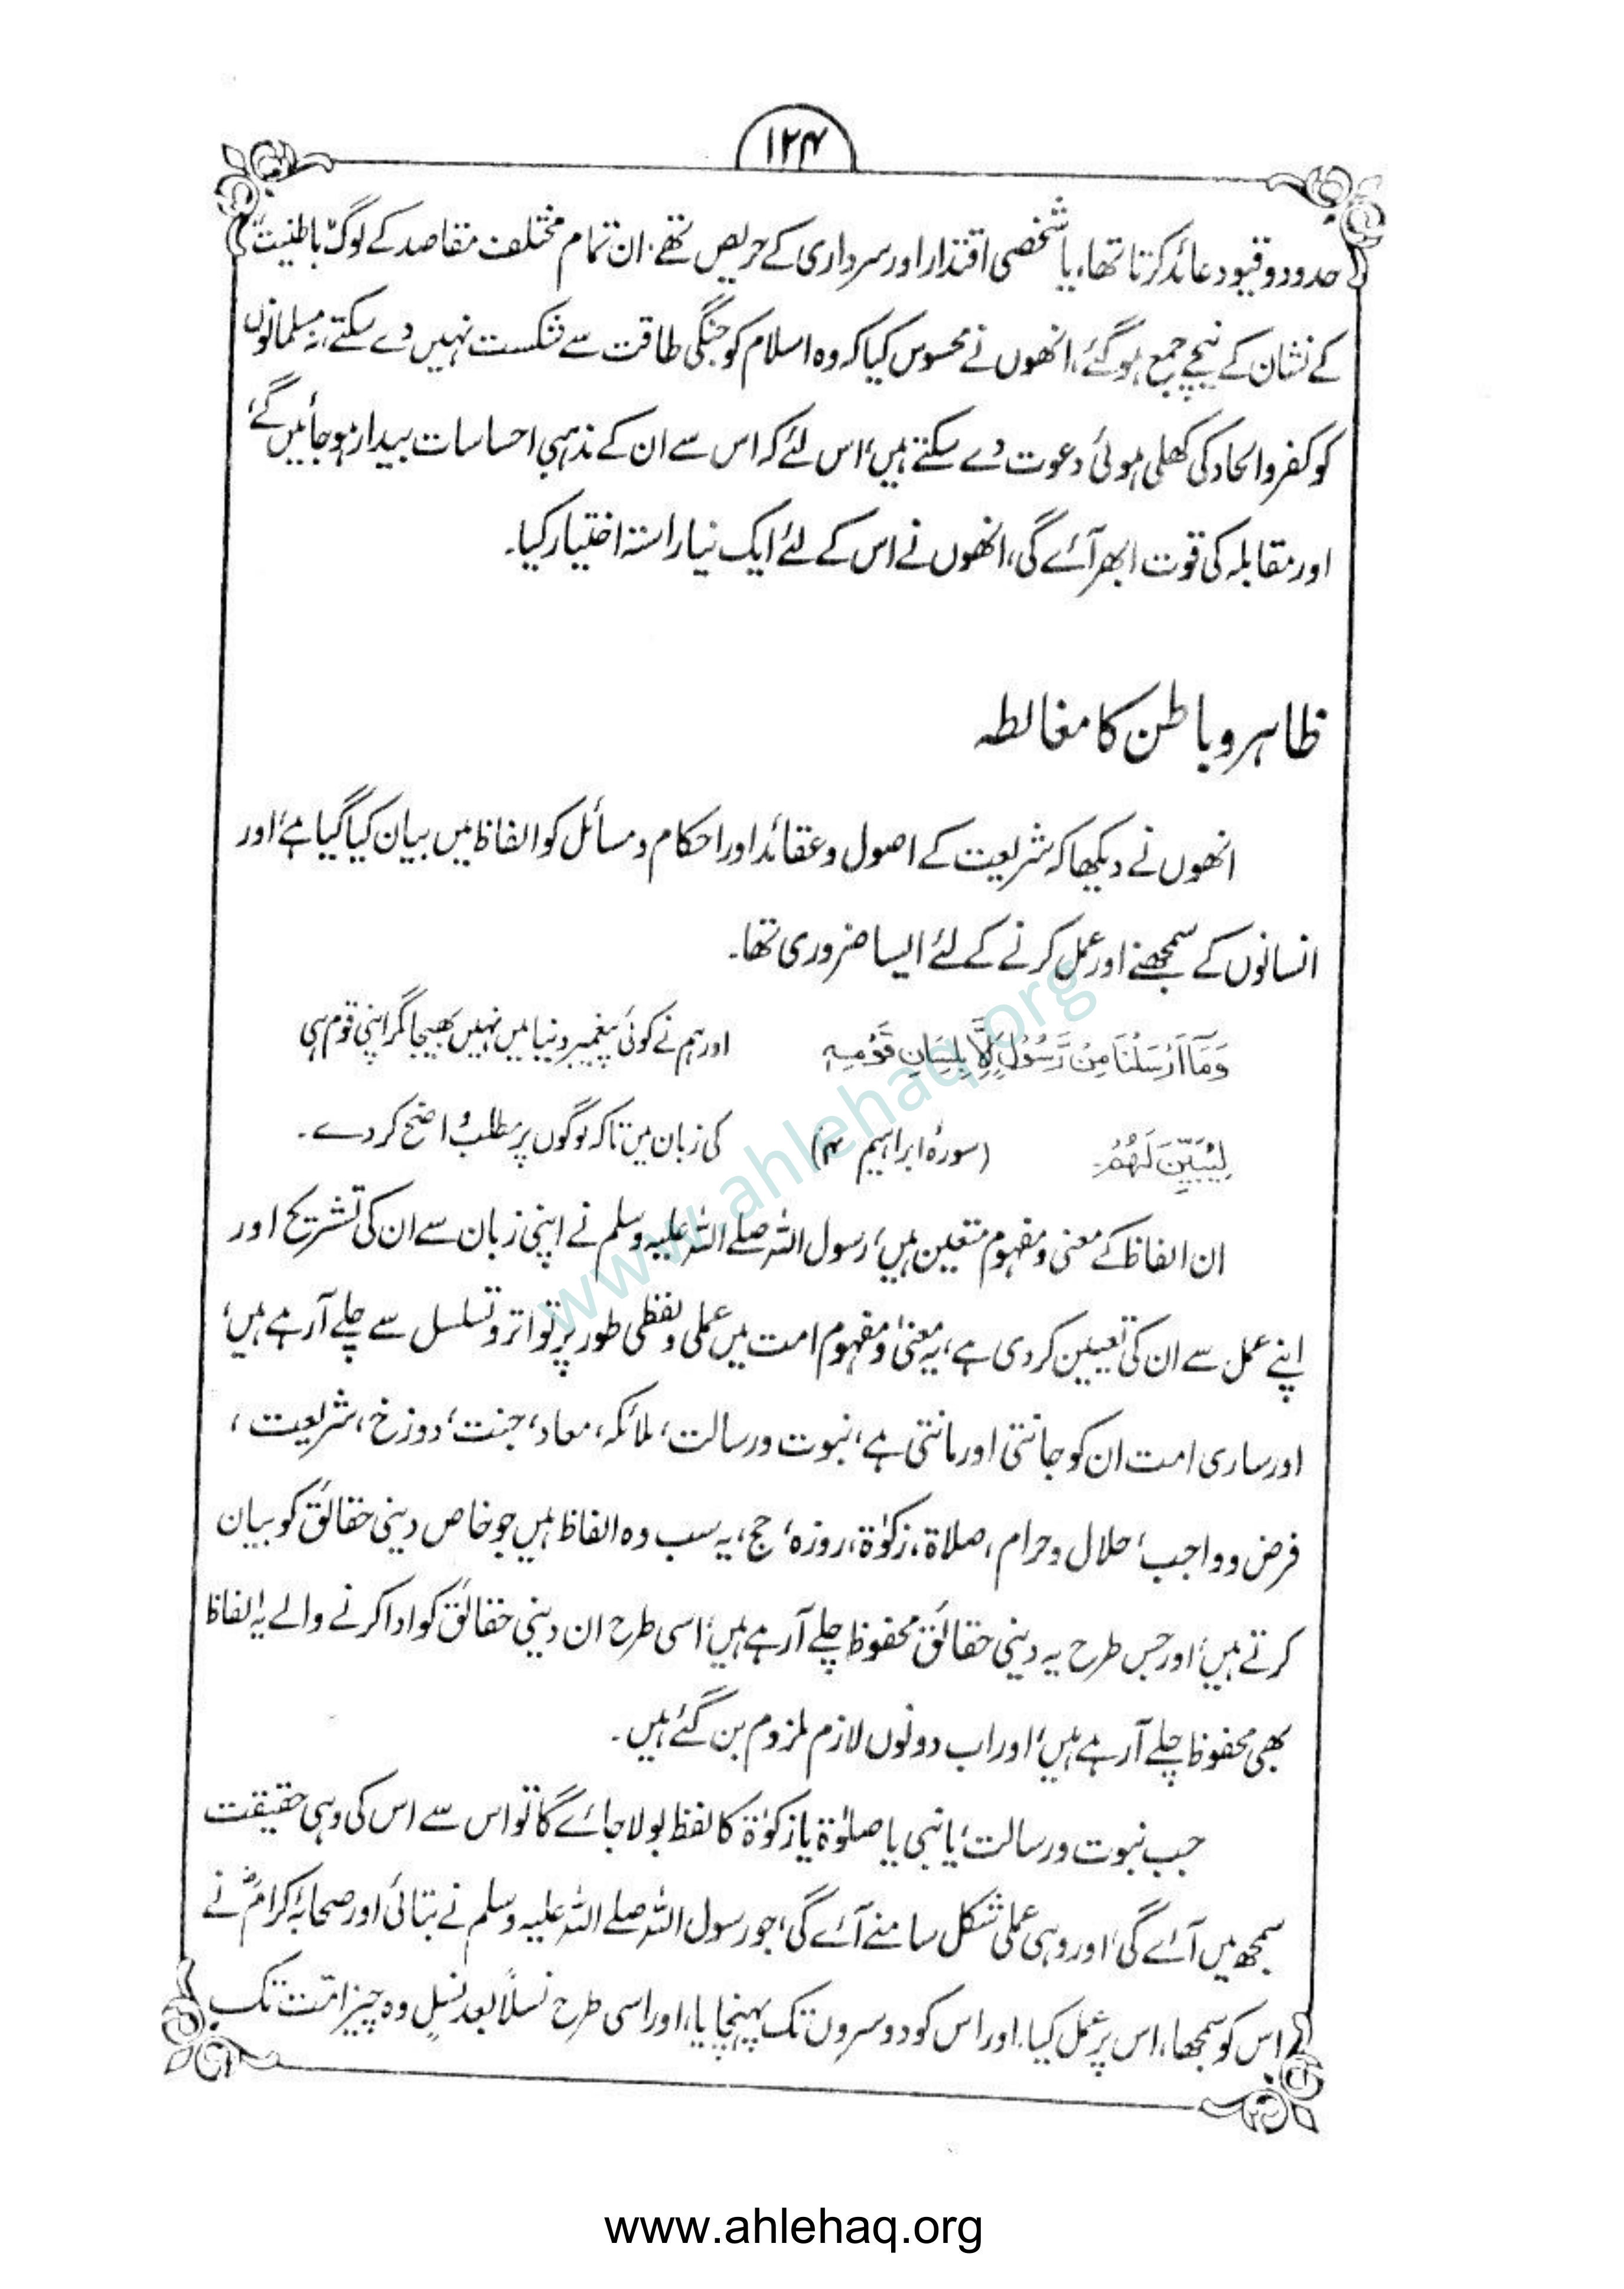 ۱۲۴
حدود و قیود عائد کرتا تھا، یا شخصی اقتدار اور سرداری کے حریص تھے، ان تمام مختلف مقاصد کے لوگ "باطنیت"
کے نشان کے نیچے جمع ہو گئے، انھوں نے محسوس کیا کہ وہ اسلام کو جنگی طاقت سے شکست نہیں دے سکتے، نہ مسلمانوں
کو کفر و الحاد کی کھلی ہوئی دعوت دے سکتے ہیں، اس لئے کہ اس سے ان کے مذہبی احساسات بیدار ہو جائیں گے،
اور مقابلہ کی قوت ابھر آئے گی، انھوں نے اس کے لئے ایک نیا راستہ اختیار کیا۔
ظاہر و باطن کا مغالطہ
انھوں نے دیکھا کہ شریعت کے اصول و عقائد اور احکام و مسائل کو الفاظ میں بیان کیا گیا ہے، اور
انسانوں کے سمجھنے اور عمل کرنے کے لئے ایسا ضروری تھا۔
وَمَآ اَرْسَلْنَا مِنْ رَّسُوْلٍ اِلَّا بِلِسَانِ قَوْمِهٖ اور ہم نے کوئی پیغمبر دنیا میں نہیں بھیجا مگر اپنی قوم ہی
لِيُبَيِّنَ لَهُمْ۔ (سورۂ ابراہیم ۴) کی زبان میں تاکہ لوگوں پر مطلب واضح کر دے۔
ان الفاظ کے معنی و مفہوم متعین ہیں، رسول اللہ صلے اللہ علیہ وسلم نے اپنی زبان سے ان کی تشریح اور
اپنے عمل سے ان کی تعیین کر دی ہے، یہ معنیٰ و مفہوم امت میں عملی و لفظی طور پر تواتر و تسلسل سے چلے آرہے ہیں،
اور ساری امت ان کو جانتی اور مانتی ہے، نبوت و رسالت، ملائکہ، معاد، جنت، دوزخ، شریعت،
فرض و واجب، حلال و حرام، صلاۃ، زکوٰۃ، روزہ، حج، یہ سب وہ الفاظ ہیں جو خاص دینی حقائق کو بیان
کرتے ہیں، اور جس طرح یہ دینی حقائق محفوظ چلے آرہے ہیں، اسی طرح ان دینی حقائق کو ادا کرنے والے یہ الفاظ
بھی محفوظ چلے آرہے ہیں، اور اب دونوں لازم ملزوم بن گئے ہیں۔
جب نبوت و رسالت، یا نبی یا صلوٰۃ یا زکوٰۃ کا لفظ بولا جائے گا تو اس سے اس کی وہی حقیقت
سمجھ میں آئے گی، اور وہی عملی شکل سامنے آئے گی، جو رسول اللہ صلے اللہ علیہ وسلم نے بتائی اور صحابۂ کرامؓ نے
اس کو سمجھا، اس پر عمل کیا، اور اس کو دوسروں تک پہنچایا، اور اسی طرح نسلاً بعد نسلٍ وہ چیز امّت تک
www.ahlehaq.org
www.ahlehaq.org